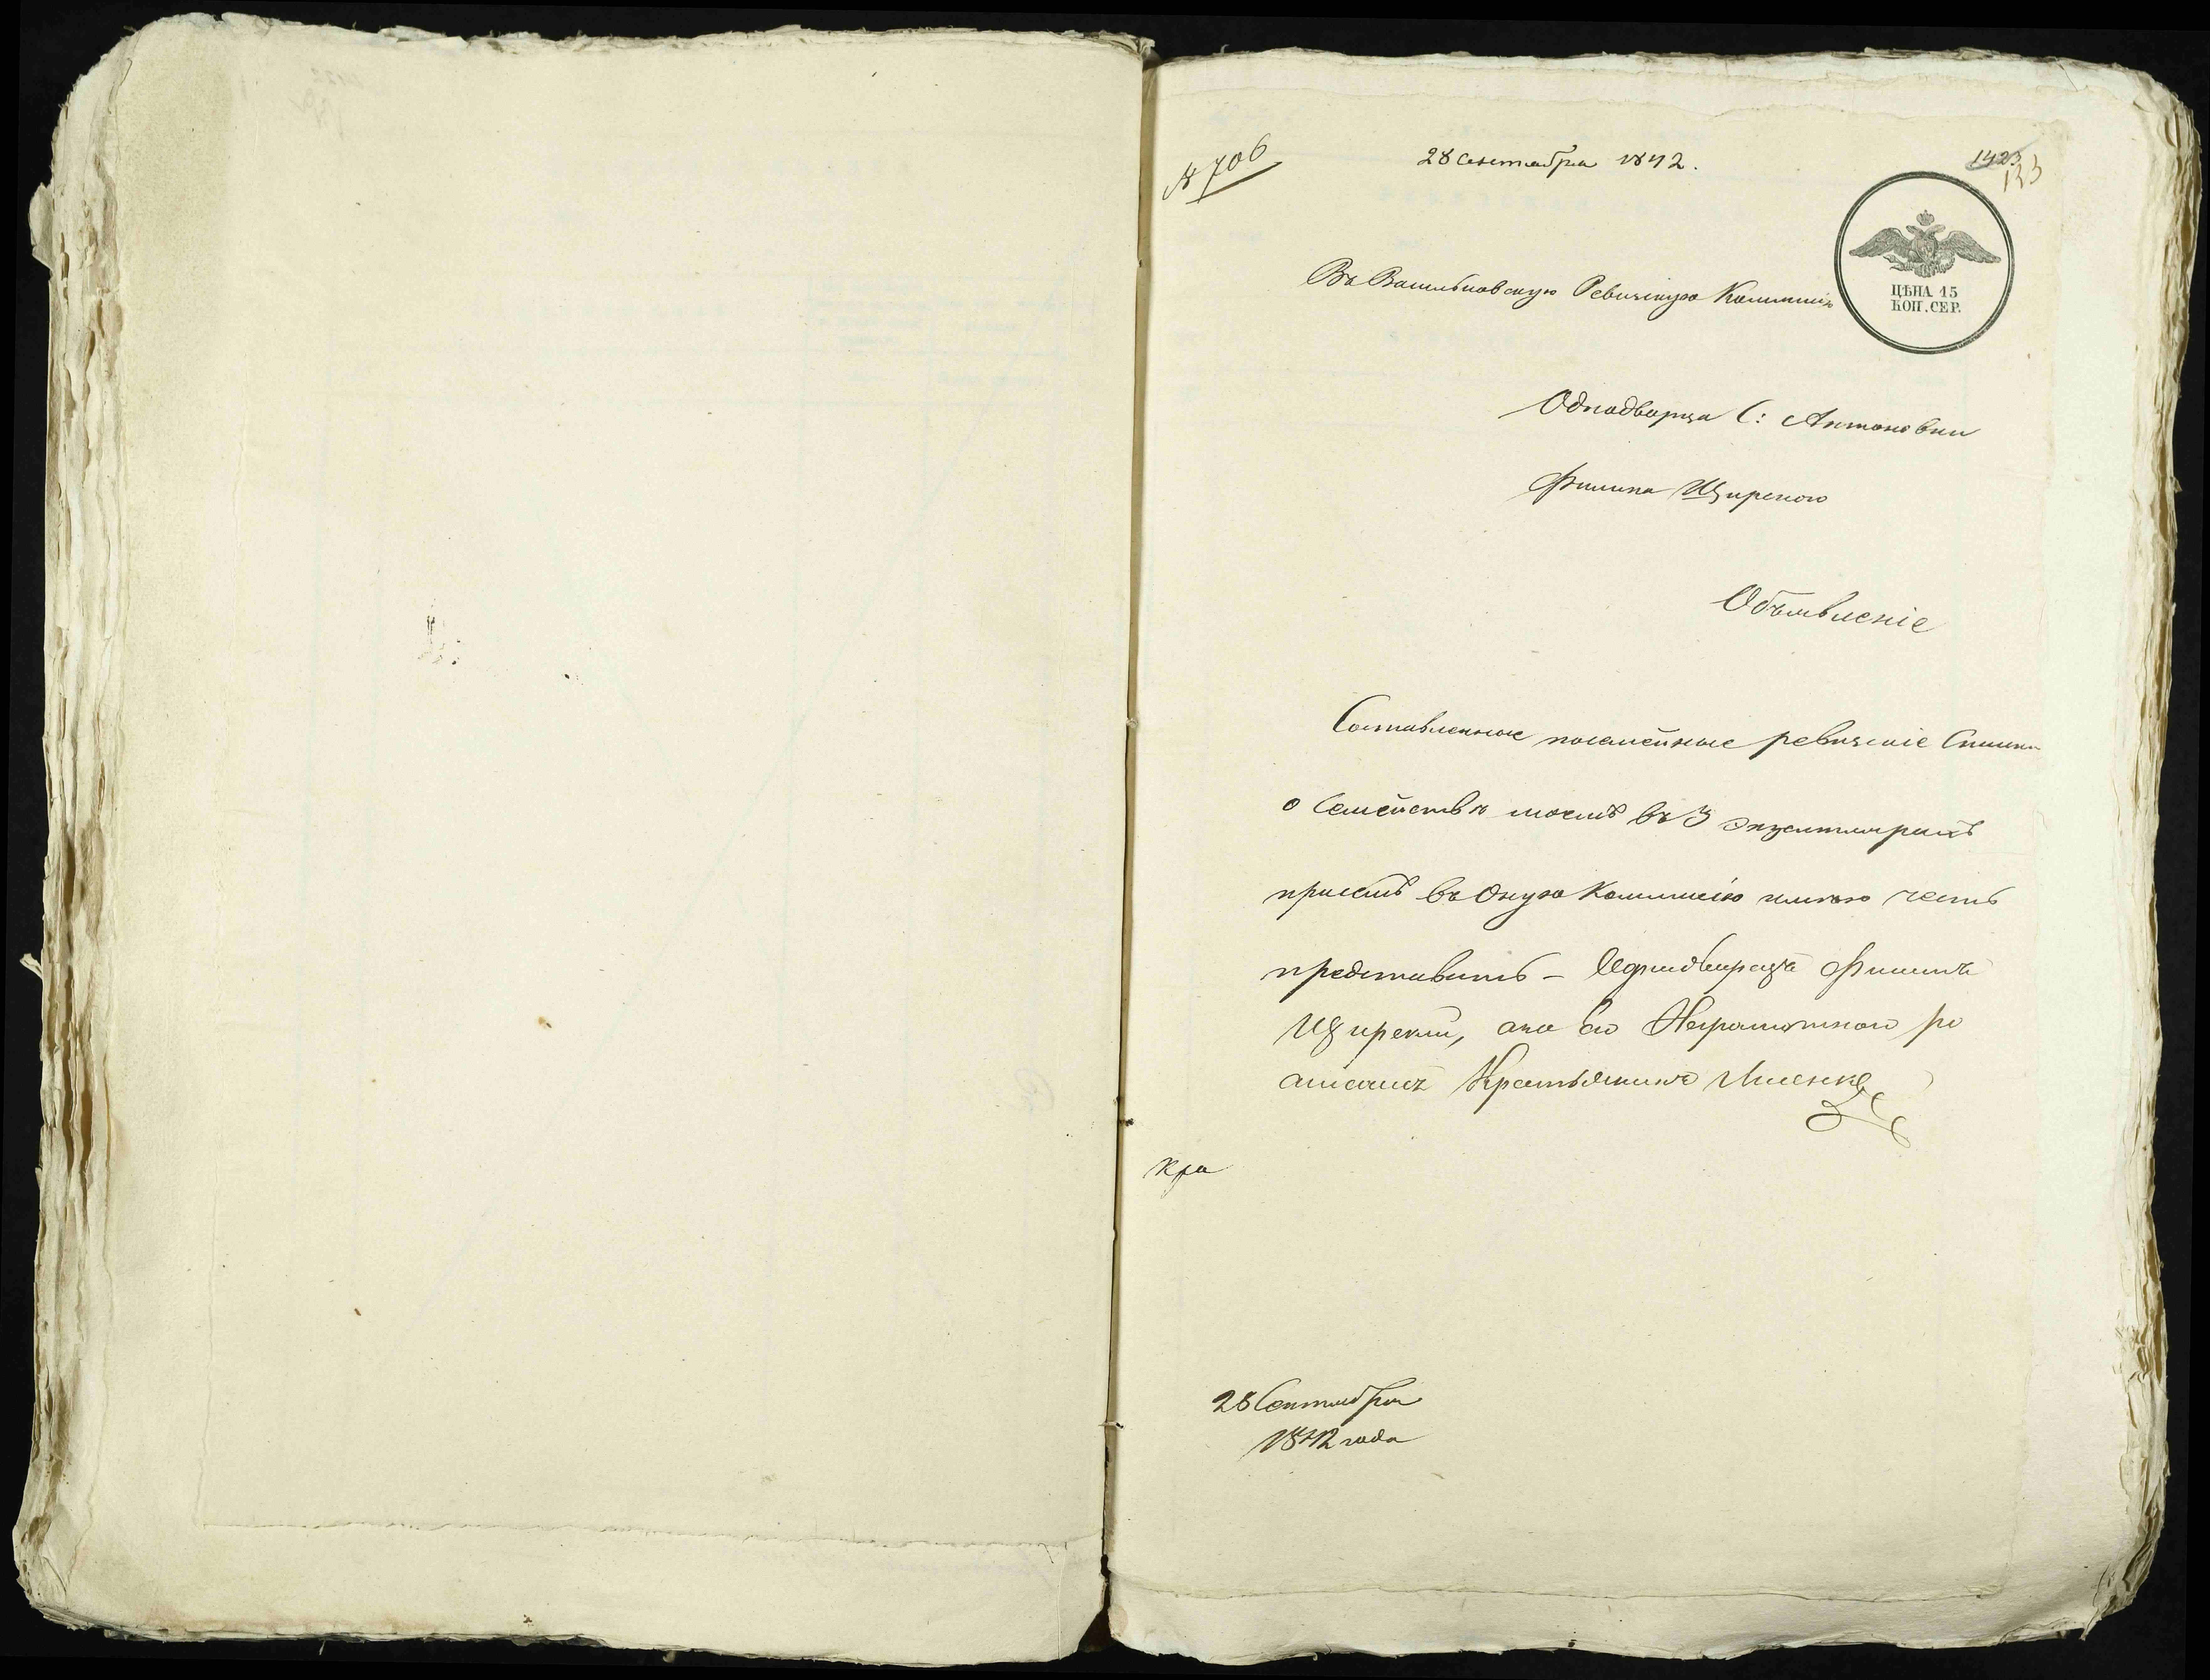 № 706
28 Сентября 1842.
1423
133
Въ Васильковскую Ревизскую Коммисію
ЦѢНА 15
КОП. СЕР.
Однодворца С: Антоновки
Филипа Щирского
Объявленіе
Составленные посемейные ревизскіе Списки
о Семействѣ моемъ въ 3 экземплярахъ
при семъ въ Оную Коммисію имѣю честь
представить – Однодворецъ Филипъ
Щирскій, а по его Неграмотности ро
списался Крестьянинъ
Кра
28 Сентября
1842 года